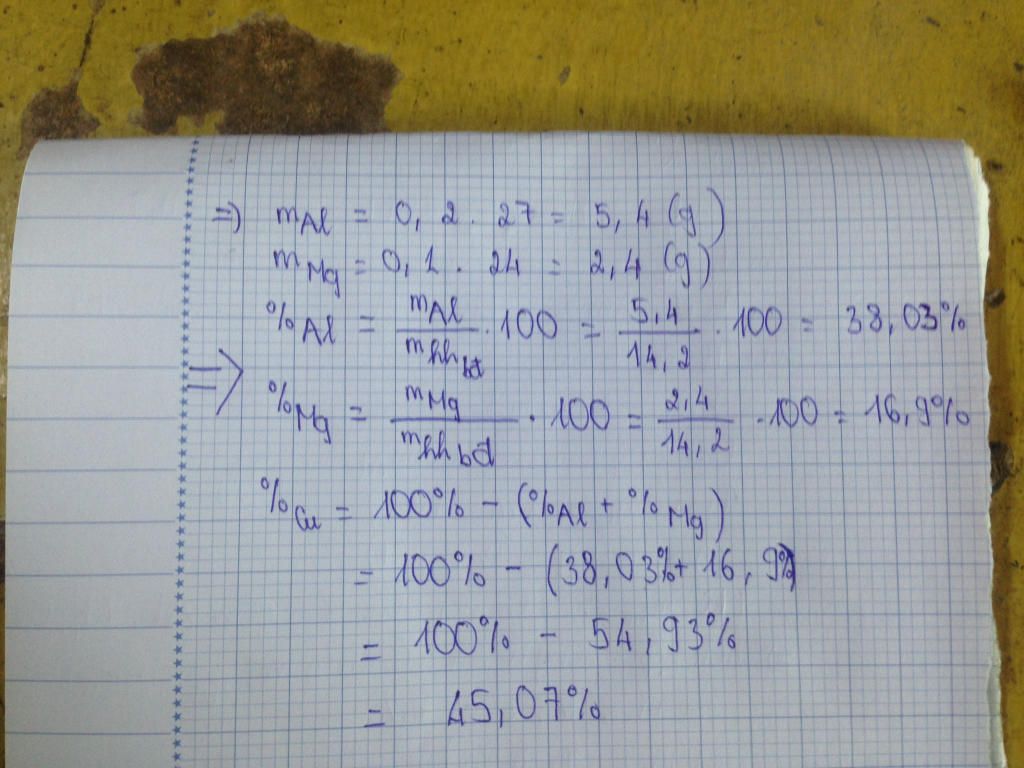 =) mAl = 0, 2 . 27 = 5, 4 (g)
mMg = 0, 1 . 24 = 2, 4 (g)
=> %Al = mAl / mhhbđ . 100 = 5,4 / 14,2 . 100 = 38,03%
%Mg = mMg / mhhbđ . 100 = 2,4 / 14,2 . 100 = 16,9%
%Cu = 100% - (%Al + %Mg)
= 100% - (38,03% + 16,9%)
= 100% - 54,93%
= 45,07%